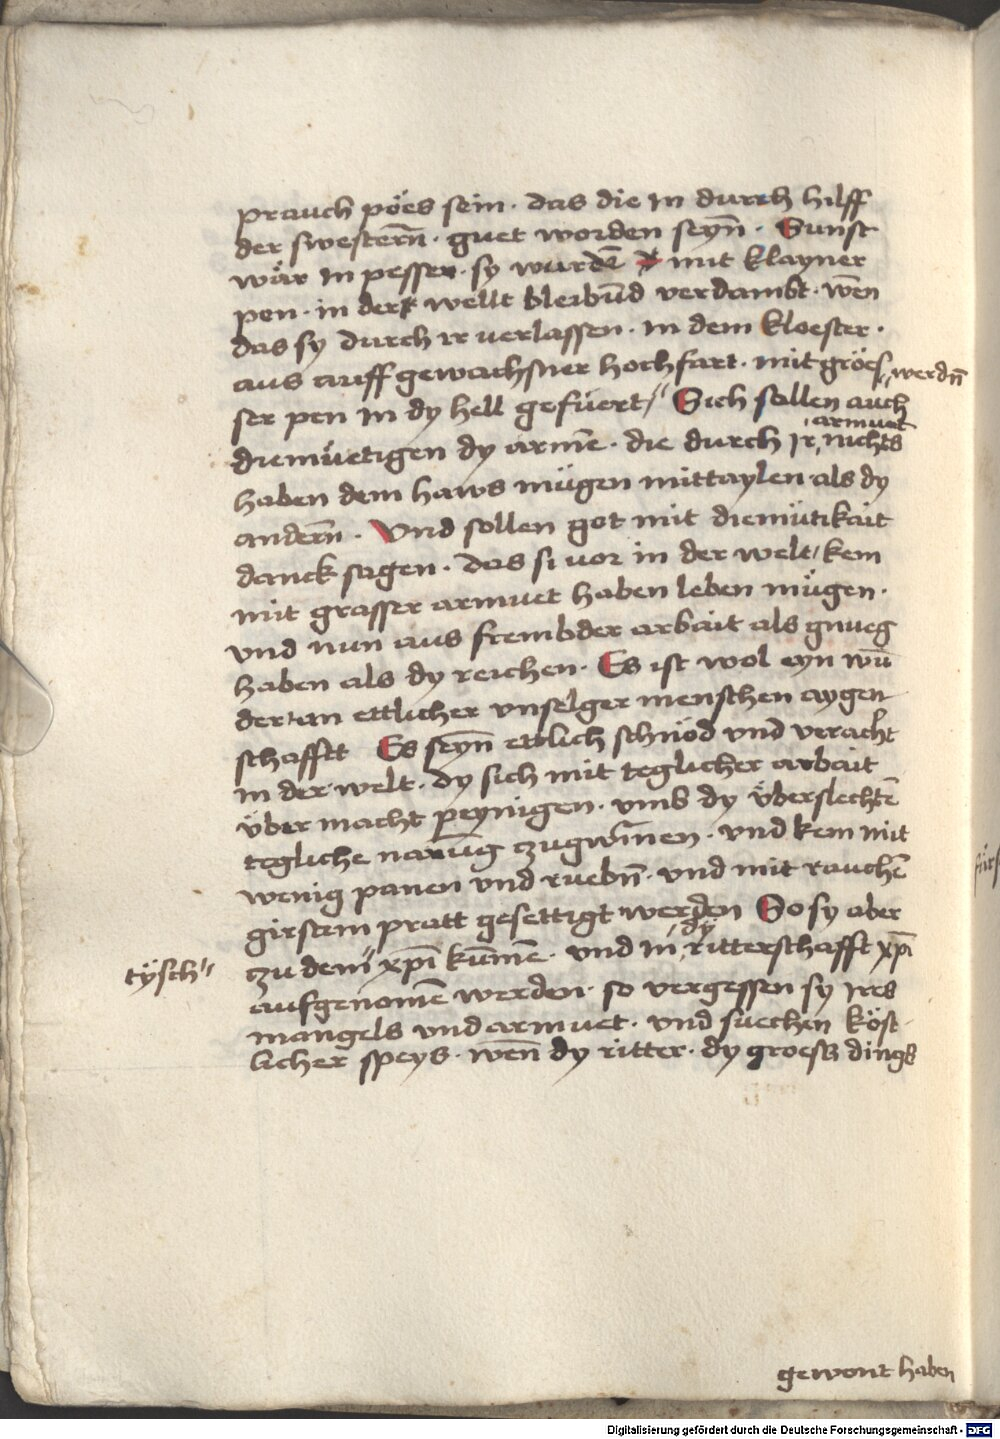 prauch pöes sein · das die In durch hilff
der swesterñ · guet worden seyn̄ · Sunst
wär In pesser · sy wurdē mit klayner
pen · in der wellt bleibūd verdambt · wēn
das sy durch ir verlassen · in dem kloester ·
aus auff gewachsner hochfart · mit gröes
werdn̄
ser pen In dy hell gefüert // Sich sollen auch
armuet
diemüetigen dy armē · die durch Ir nichts
haben dem haws mügen mittaylen · als dy
anderñ · Vnd sollen got mit diemütikait
danck sagen · das si vor in der welt / kem
mit grasser armuet haben leben mügen ·
vnd nun aus frembder arbait als gnueg
haben als dy reichen · Es ist wol eyn wū
der an ettlicher vnselger menschen aygen
schafftt Es seyn̄ ettlich schnöd vnd veracht
in der welt · dy sich mit teglicher arbait
über macht peynigen · vmb dy überslechtē
tegliche narūg zugwīnen · vnd kem mit
wenig panen vnd ruebn̄ · vnd mit rauchē
girstem pratt gesettigt werden So sy aber
dy
zu dem " xp̄i kūmē · vnd in ritterschafft xp̄i
tÿsch "
aufgenomē werden · so vergessen sy ires
mangels vnd armuet · vnd suechen köst
licher speys · wēn dy ritter · dy groess dings
gewont haben
Digitalisierung gefördert durch die Deutsche Forschungsgemeinschaft - DFG